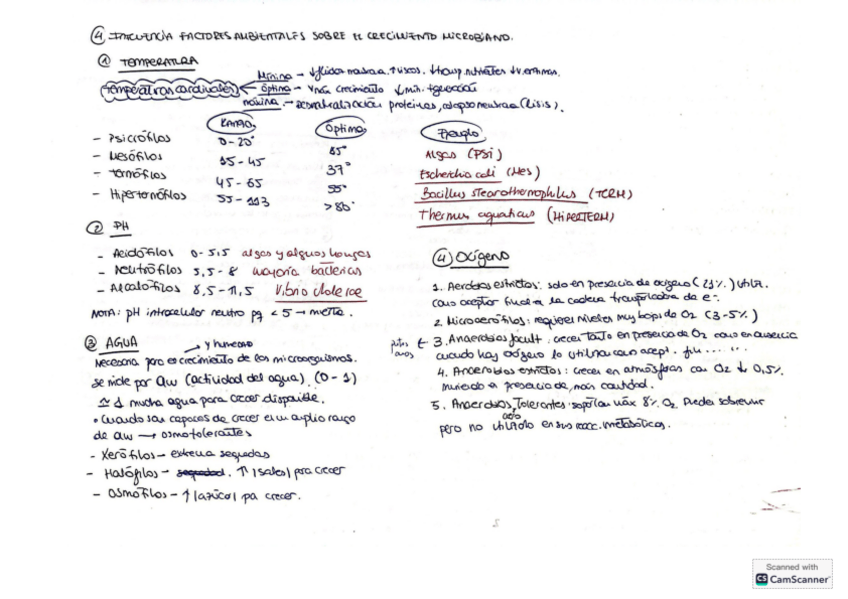 4. INFLUENCIA FACTORES AMBIENTALES SOBRE EL CRECIMIENTO MICROBIANO.
1 TEMPERATURA
Temperaturas cardinales
Mínima → ↓fluidez ↑viscos. ↓transp. nutrientes ↓v. enzimas.
óptima - vmáx crecimiento ↓min. tgeneración
máxima. - desnaturalización proteinas, colapso (lisis).
RANGO Óptima Ejemplo
- Psicrófilos 0-20° 15° Algas (PSI)
- Mesófilos 15-45 37° Escherchia coli (MES)
- Termófilos 45-65 55° Bacillus stearothermophilus (TERM)
- Hipertermófilos 55-113 >80° Thermus aquaticus (HIPERTERM)
2 PH
- Acidófilos 0-5,5 algas y algunos hongos
- Neutrófilos 5,5-8 mayoría bacterias
- Alcalófilos 8,5-11,5 Vibrio cholerae
NOTA: pH intracelular neutro pq < 5 → muerte.
3 AGUA → y humedad
Necesaria para el crecimiento de los microorganismos.
Se mide por aw (actividad del agua) (0-1)
≃ 1 mucha agua para crecer disponible.
• Cuando son capaces de crecer en un amplio rango
de aw → osmotolerantes
- Xerófilos - extrema sequedad
- Halófilos - sequedad. ↑ |sales| para crecer
- Osmófilos - ↑ |azúcar| pa crecer.
4 OXÍGENO
1. Aerobios estrictos: solo en presencia de oxígeno (21%) utiliz.
como aceptor final de la cadena transportadora de e-.
2. Microaerófilos: requieren niveles muy bajos de O2 (3-5%)
3. Anaerobios facult.: crecer tanto en presencia de O2 como en ausencia
cuando hay oxígeno lo utilizan como acept. fin......
4. Anaerobios estrictos: crecer en atmósferas con O2 ↓ 0,5%.
muriendo en presencia de mayor cantidad.
5. Anaerobios aerotolerantes: soportan máx 8% O2 Pueden sobrevivir
pero no utilizarlo en sus reacc. metabólicas.
Scanned with
CS CamScanner